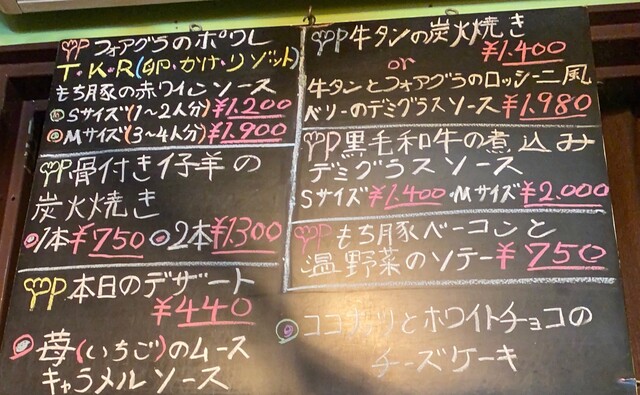 フォアグラのポワレ
T・K・R(卵・かけ・リゾット)
もち豚の赤ワインソース
Sサイズ(1〜2人分)¥1.200
Mサイズ(3〜4人分)¥1.900
骨付き仔羊の
炭火焼き
1本¥750 2本¥1.300
本日のデザート
¥440
苺(いちご)のムース
キャラメルソース
牛タンの炭火焼き
¥1.400
or
牛タンとフォアグラのロッシーニ風
ベリーのデミグラスソース¥1.980
黒毛和牛の煮込み
デミグラスソース
Sサイズ¥1.400・Mサイズ¥2.000
もち豚ベーコンと
温野菜のソテー¥750
ココナッツとホワイトチョコの
チーズケーキ